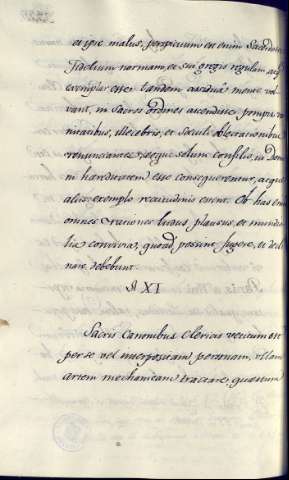 et ipse malus, perspicuum est enim Sacerdotem
Fidelium normam, et sui gregis regulam atq.
exemplar esse: tandem assidua mente vol-
vant, in Sacros Ordines ascendisse, pompis, va-
nitatibus, illecebris, et Sæculi oblectationibus
renunciantes, eoque solum consilio, ut Domi-
ni hæreditatem esse consequerentur, atque
aliis exemplo
omnes rationes ludos plausus, et mundia-
lia convivia, quoad possint fugere, et decli-
nare debebunt.
§ XI
Sacris Canonibus Clericis vetitum est
per se vel interpositam personam, vilam
artem mechanicam tractare, quæstum